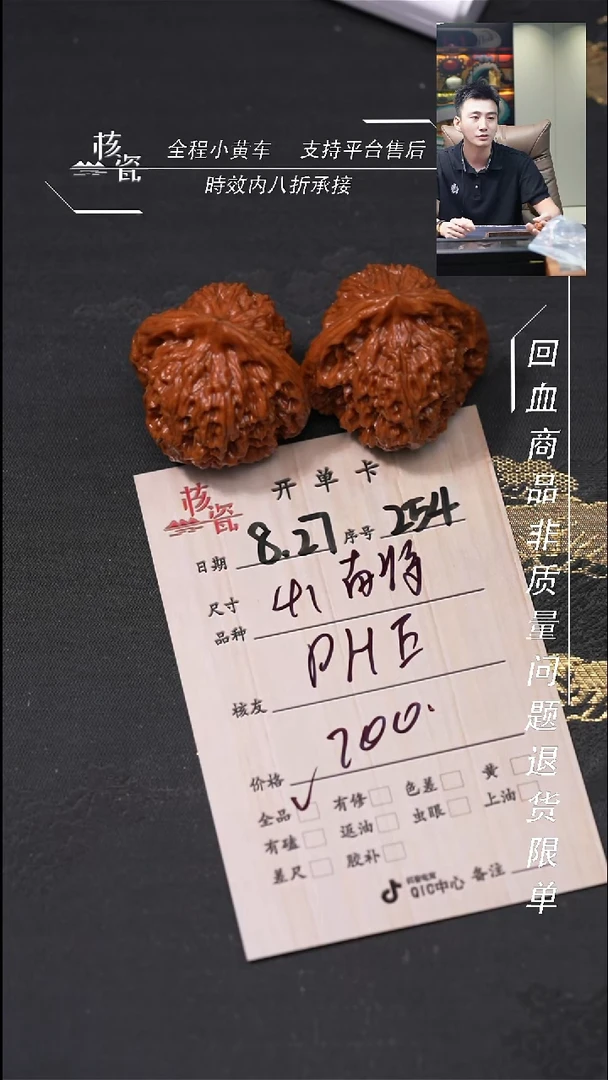 核瓷
全程小黄车 支持平台售后
時效内八折承接
回血商品非质量问题退货限单
核瓷
开单卡
日期 8.27 序号 254
尺寸 41南将
品种
PHE
核友
价格 700.
全品 ✓ 有修 色差 黄
有磕 返油 虫眼 上油
差尺 胶补
QIC中心 备注